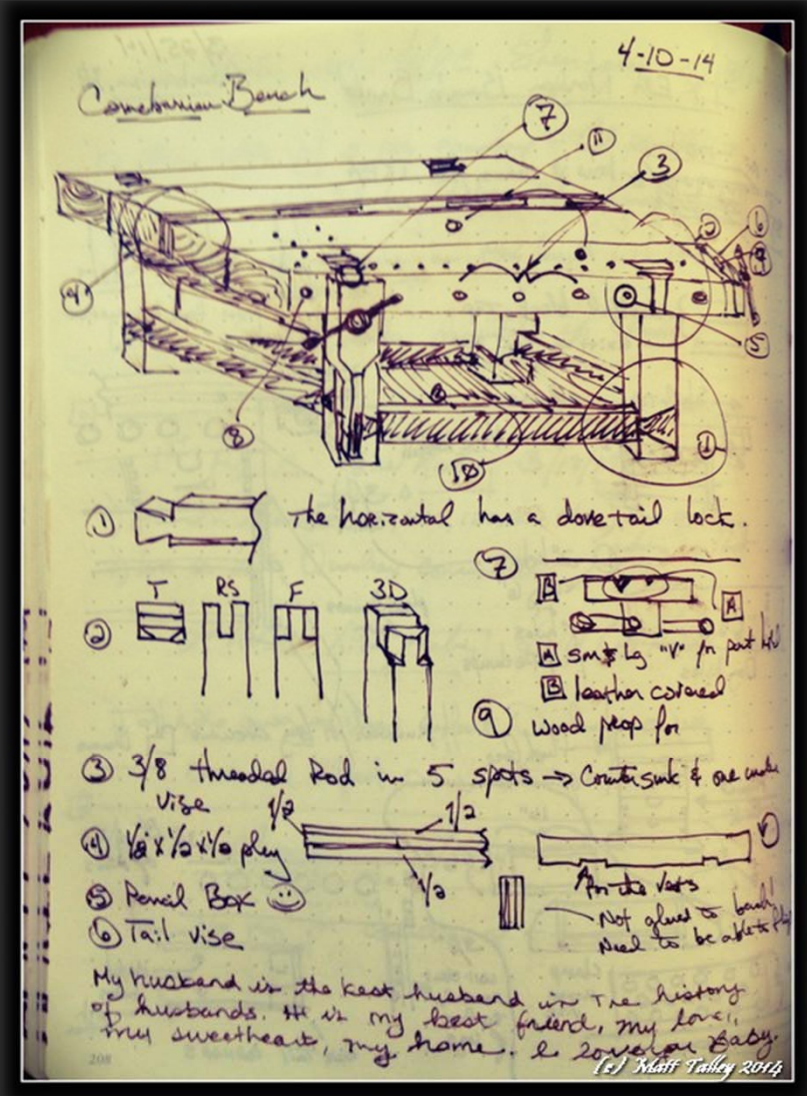 4-10-14
Bench
7
11
3
6
4
5
8
10
1
① The horizontal has a dovetail lock.
⑦
B
A
T RS F 3D
②
A sm & Lg "V" for part hold
B leather covered
⑨ wood prop for
③ 3/8 threaded Rod in 5 spots → Countersink & one under
Vise
1/2 1/2
④ 1/2 x 1/2 x 1/2 play
1/2
for the verts
⑤ Pencil Box
Not glued to bench!
Need to be able to
⑥ Tail vise
My husband is the best husband in the history
of husbands. He is my best friend, my love,
my sweetheart, my home. I love you Baby.
208
(c) Matt Talley 2014